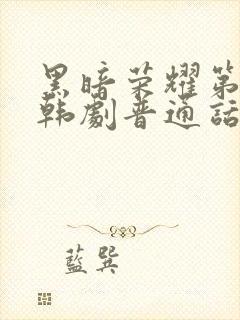 黑暗荣耀第
韩劇普通话
藍巽